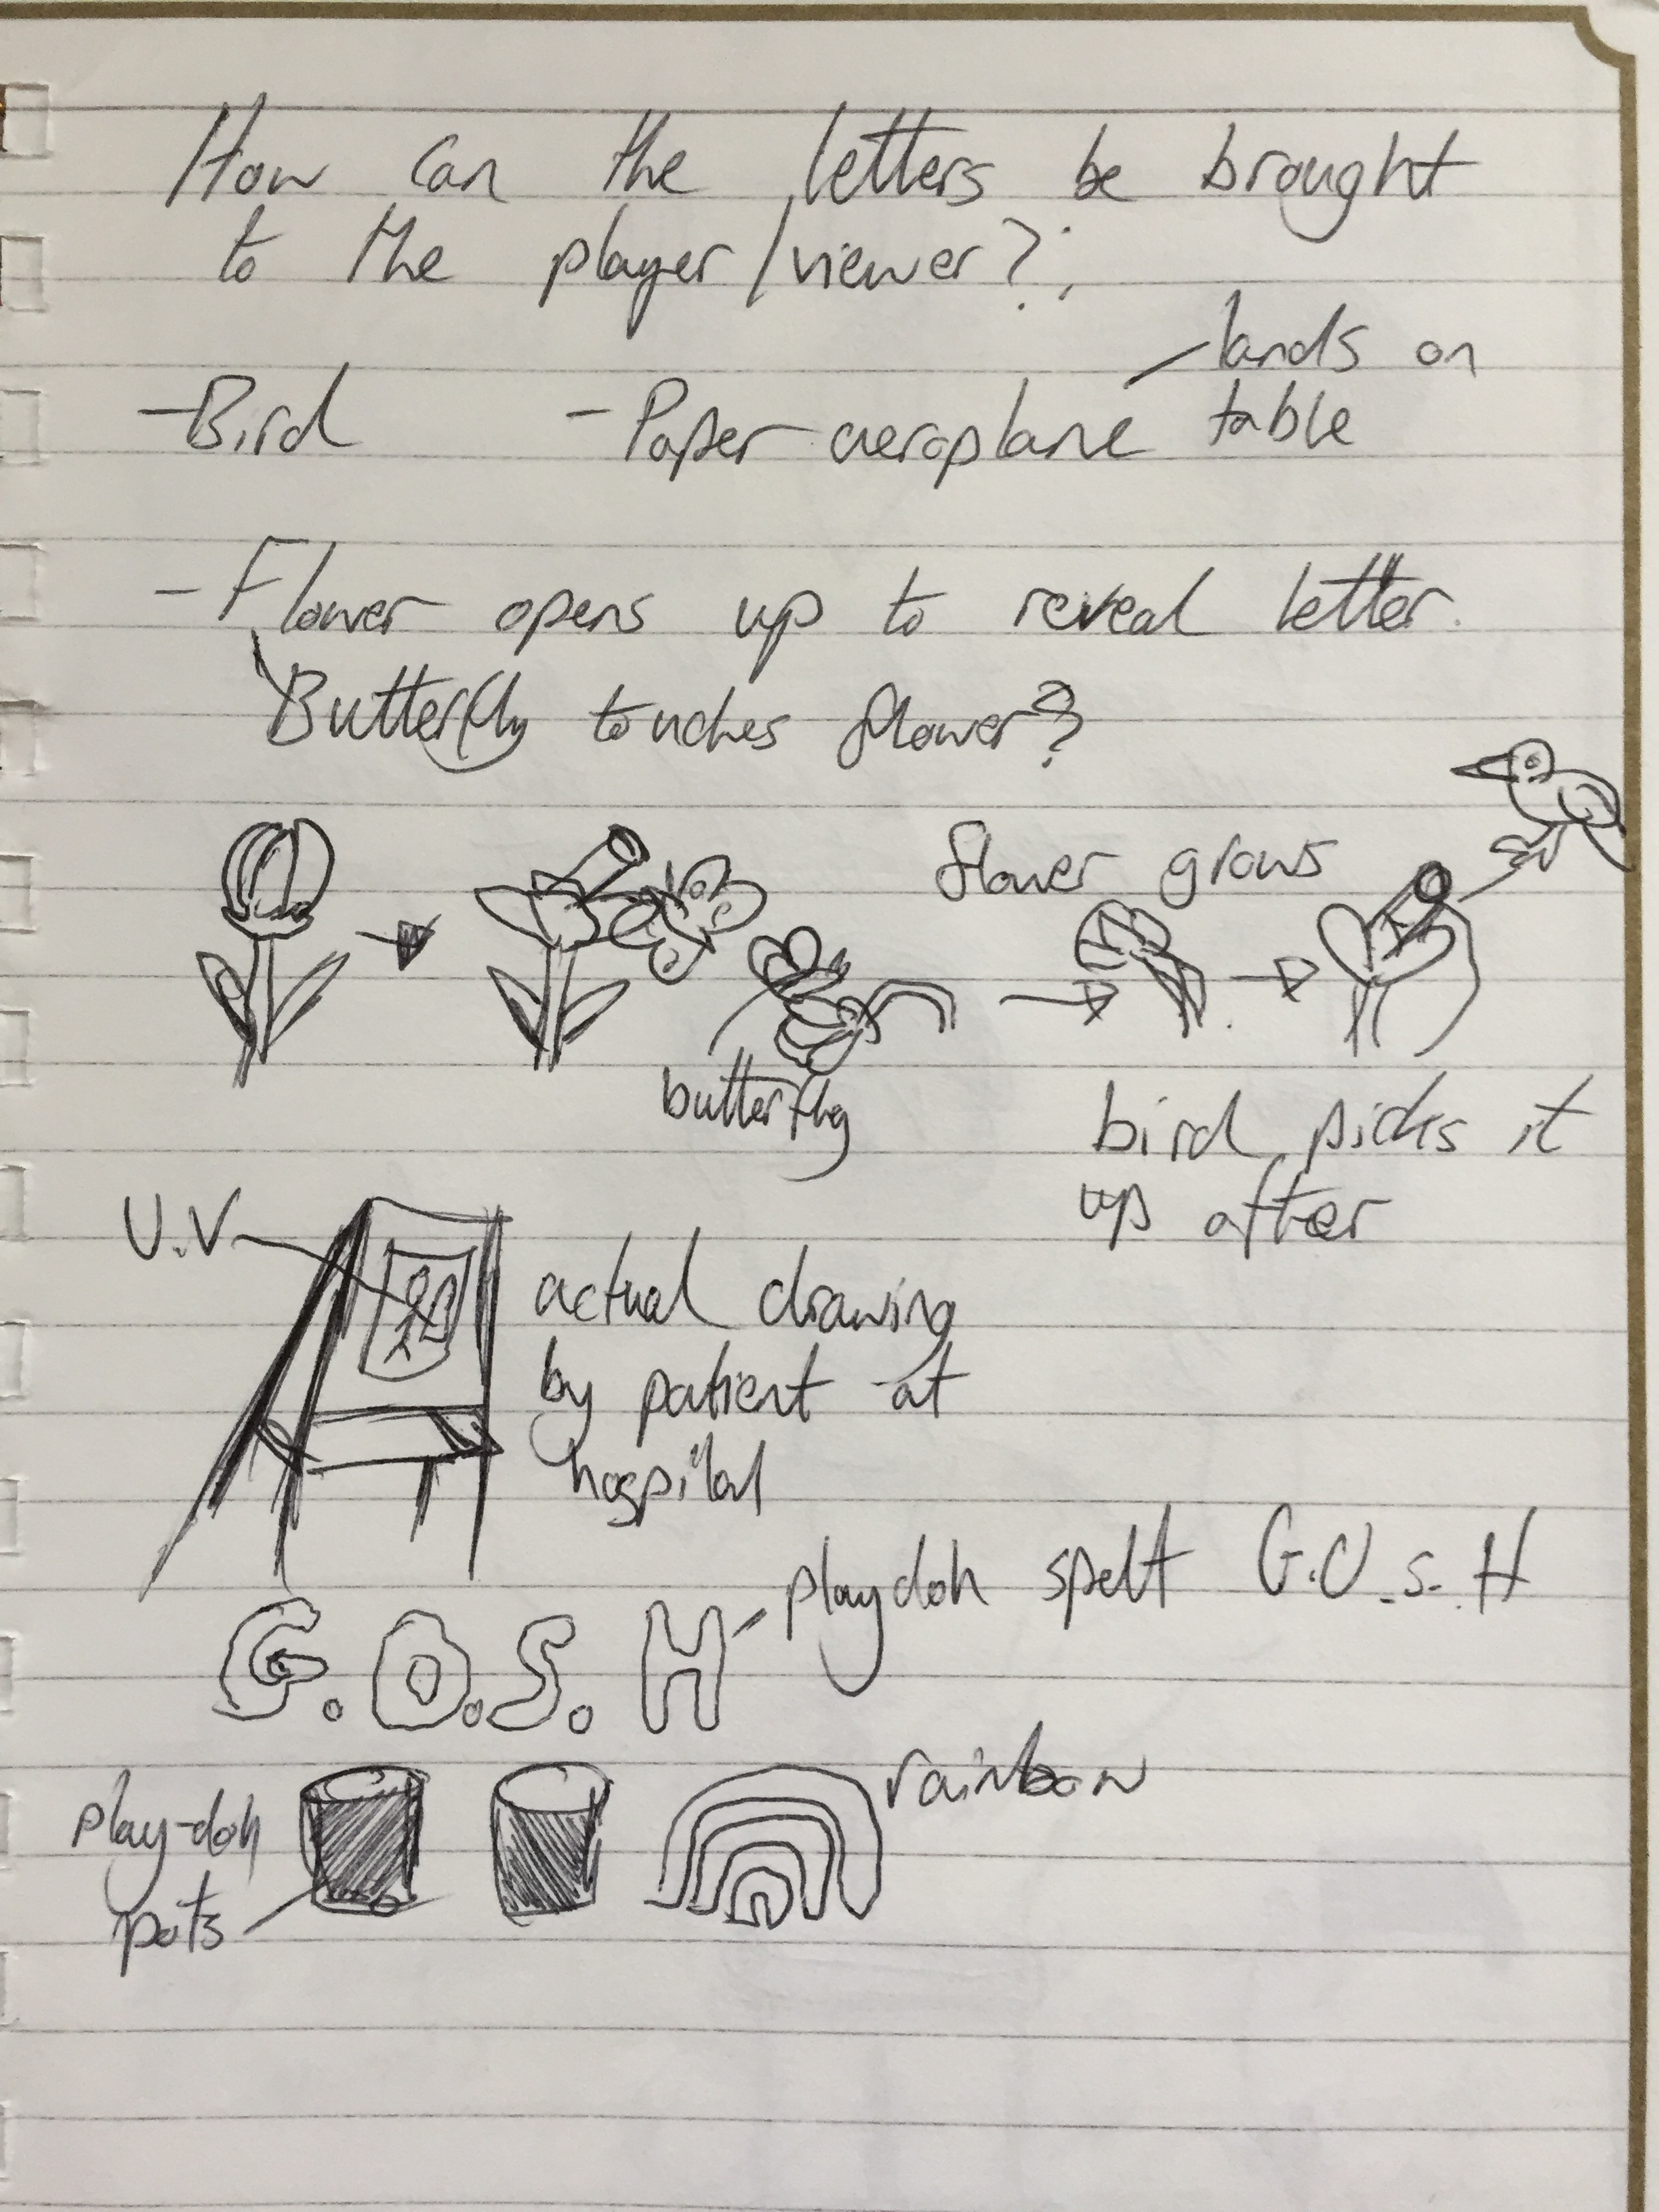 How can the letters be brought
to the player/viewer?
- Bird - Paper aeroplane
lands on
table
- Flower opens up to reveal letter.
Butterfly touches flower?
flower grows
butterfly
bird picks it
up after
U.V
actual drawing
by patient at
hospital
playdoh spelt G.O.S.H
G.O.S.H
play-doh
pots
rainbow